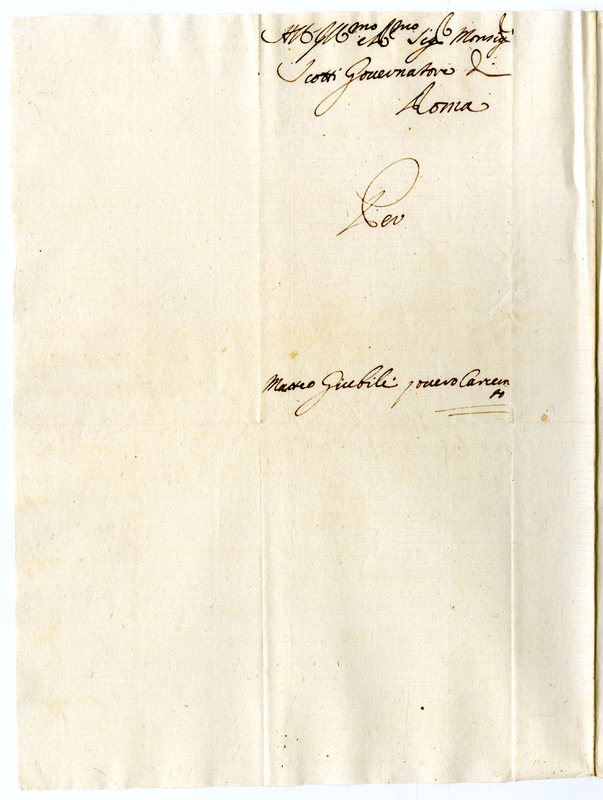 All Ill.mo e R.mo Sig.r Monsig.r
Scotti Governatore di
Roma
Per
Matteo Giubili povero Carcera
to